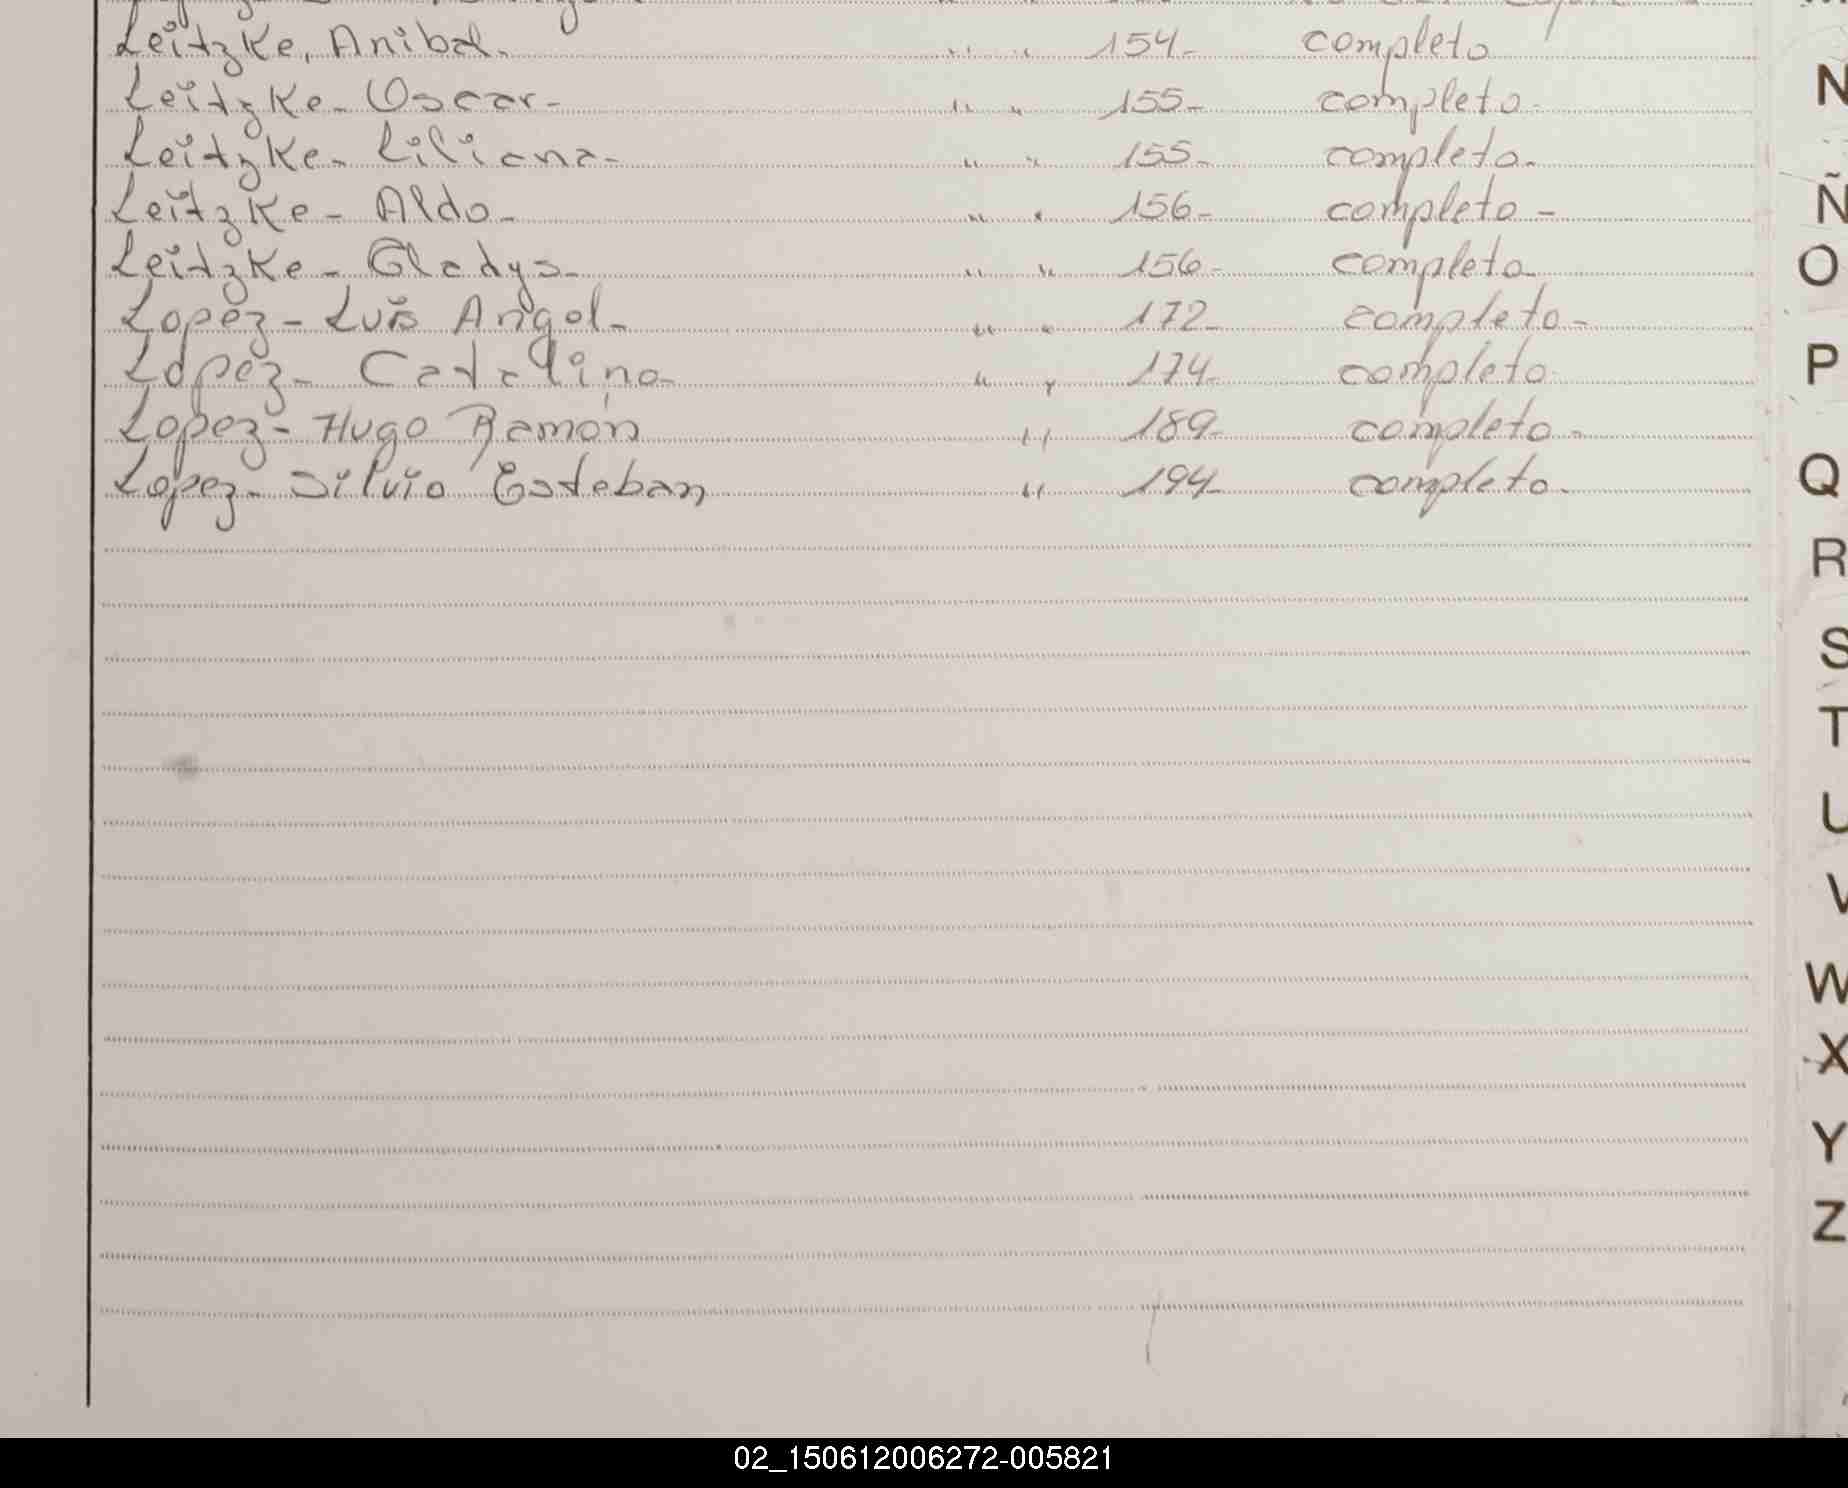 Leitzke, Anibal. " " 154- completo
Leitzke- Oscar- " " 155- completo-
Leitzke- Liliana- " " 155- completo.-
Leitzke- Aldo- " " 156- completo-
Leitzke- Gladys- " " 156- completo-
Lopez- Luis Angel- " " 172- completo-
Lopez- Catalino- " " 174- completo-
Lopez- Hugo Ramón " 189- completo-
Lopez- Silvio Esteban " 194- completo-
N
Ñ
O
P
Q
R
S
T
U
V
W
X
Y
Z
02_150612006272-005821